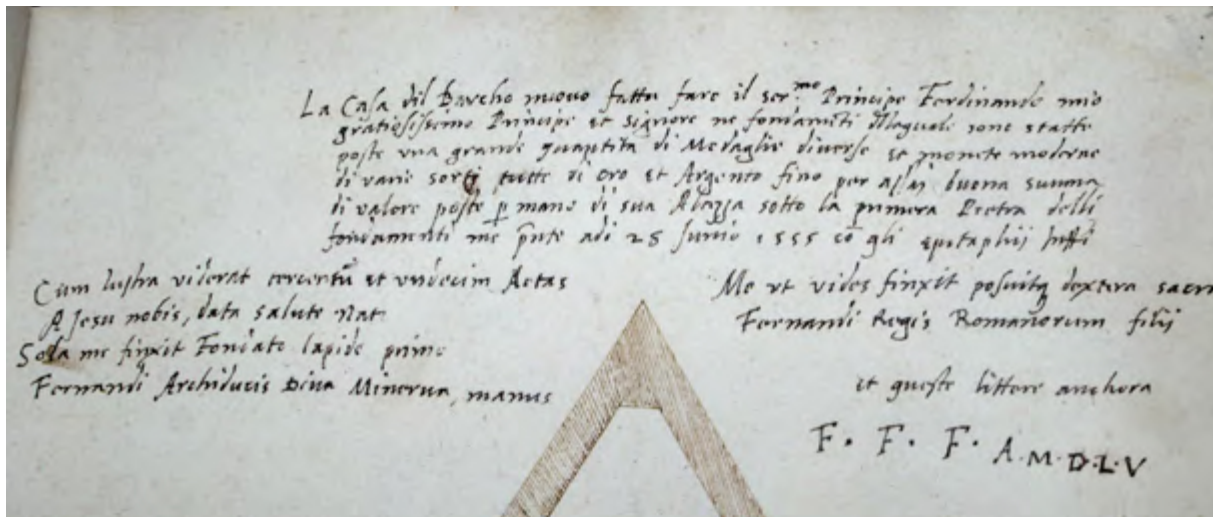 La Casa dil Barcho nuovo fattu fare il ser.mo Principe Ferdinando mio
gratiosissimo Principe et Signore ne fondamẽti Ilequale sono statte
poste una grande quantita di Medaglie diverse et monete moderne
di varie sorti tutte di oro et Argento fino per assai buona summa
di valore poste p mano di sua Altezza sotto la primera Pietra delli
fondamenti me p̃nte adi 28 Junio 1555 cõ gli epitaphii
Cum lustra viderat tercentũ et undecim Aetas
A Jesu nobis, data salute Nat
Sola me finxit Fondato lapide primo
Fernandi Archiducis Diva Minerva, manus
Me ut vides finxit posuitq dextera sacra
Fernandi Regis Romanorum filii
et queste littere anchora
F. F. F. A.M.D.L.V